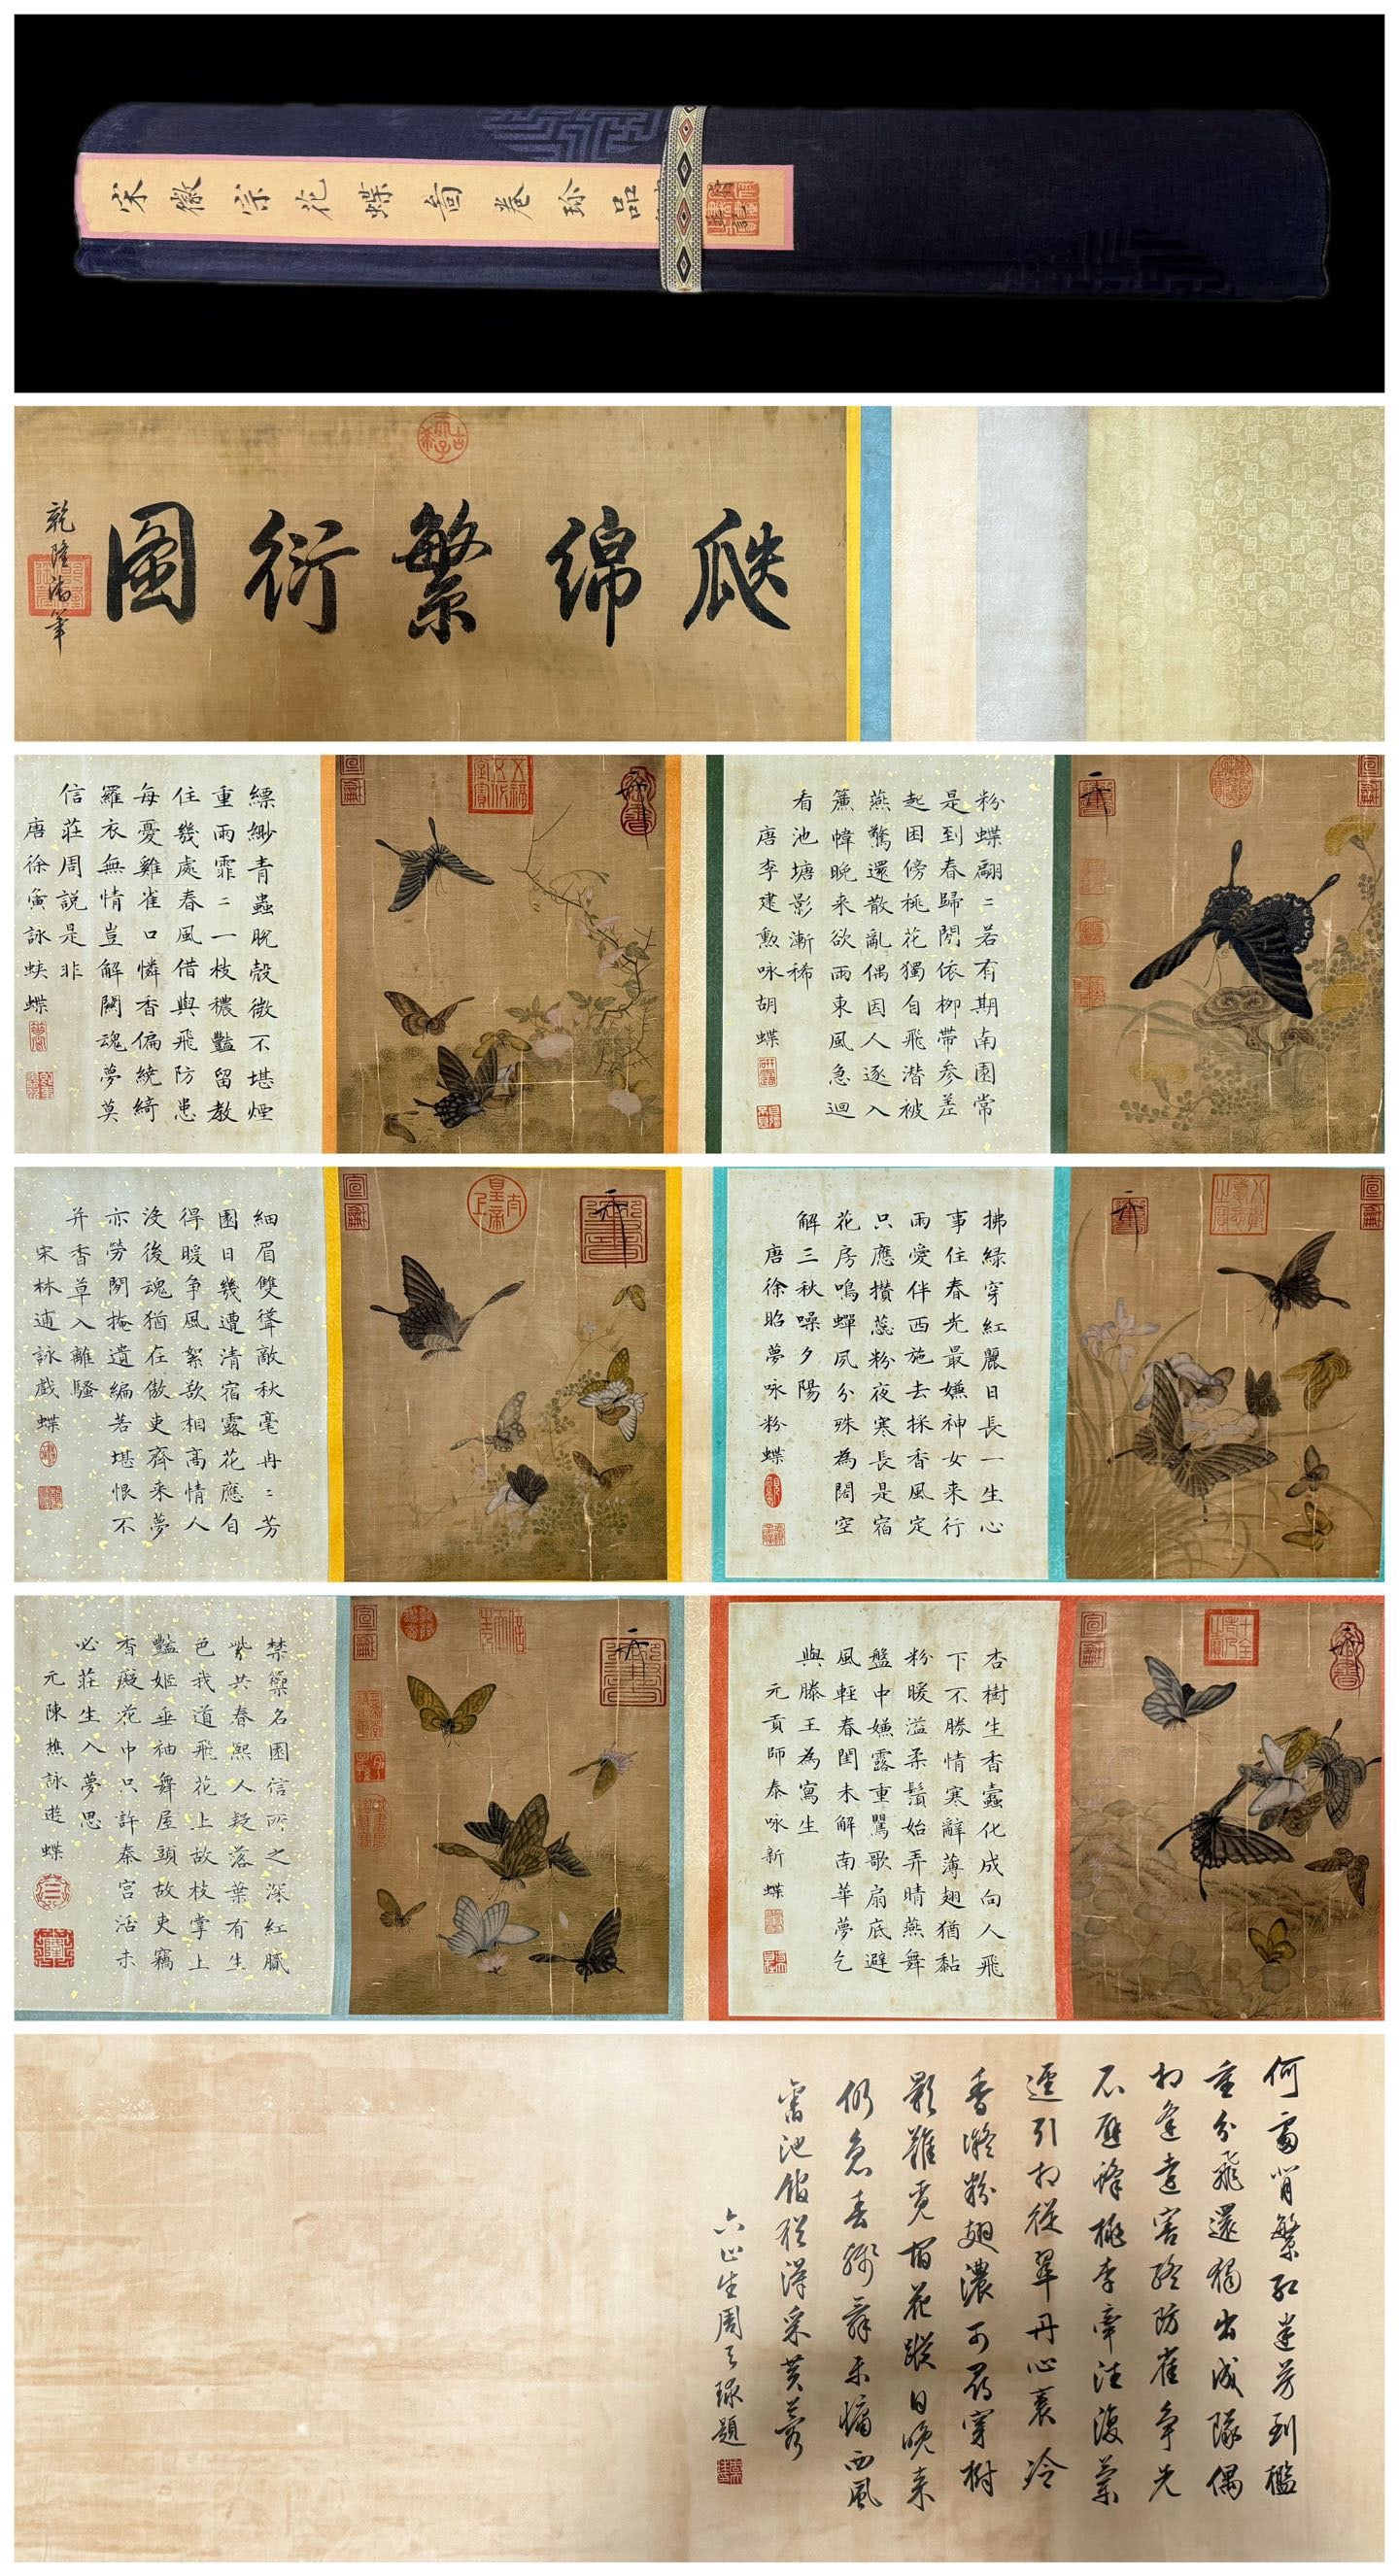 宋徽宗花蝶啚卷珍品
瓞綿繁衍圖
乾隆御筆
古希天子
粉蝶翩〻若有期南園常
是到春歸閒依柳帶參差
起困傍桃花獨自飛潛被
燕驚還散亂偶因人逐入
簾幃晚來欲雨東風急迴
看池塘影漸稀
唐李建勲咏胡蝶
御書
縹緲青蟲脫殼微不堪煙
重雨霏〻一枝穠豔留教
住幾處春風借與飛防患
每憂雞雀口憐香偏繞綺
羅衣無情豈解關魂夢莫
信莊周說是非
唐徐寅詠蛺蝶
八徵耄念之寶
拂綠穿紅麗日長一生心
事住春光最嫌神女来行
雨愛伴西施去採香風定
只應攢蕊粉夜寒長是宿
花房鳴蟬夙分殊為闊空
解三秋噪夕陽
唐徐昭夢咏粉蝶
太上皇帝
御書
細眉雙聳敵秋毫冉〻芳
園日幾遭清宿露花應自
得暖争風絮欲相高情人
沒後魂猶在傲吏齊来夢
亦勞閒掩遺編若堪恨不
并香草入離騷
宋林逋詠戲蝶
杏樹生香蠹化成向人飛
下不勝情寒辭薄翅猶黏
粉暖溢柔鬚始弄晴燕舞
盤中嫌露重鶯歌扇底避
風輕春閨未解南華夢乞
與滕王為寫生
元貢師泰咏新蝶
御書
禁籞名園信所之深紅膩
紫共春熙人疑落葉有生
色我道飛花上故枝掌上
豔姬垂袖舞屋頭故吏竊
香癡花中只許秦宮活未
必莊生入夢思
元陳樵詠遊蝶
何處背繁紅迷芳到檻
重分飛還獨出成隊偶
相逢遠害終防雀爭先
不避蜂桃李牽往復蘭
逕引相從翠丹心裏冷
香凝粉翅濃可尋穿樹
影難覓宿花蹤日晚来
仍急春殘舞未慵西風
舊池館猶得采芙蓉
六止生周天球題